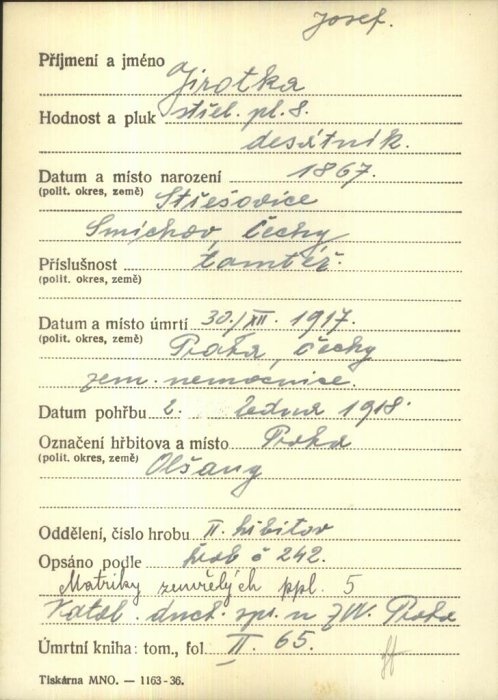 Josef.
Příjmení a jméno Jirotka
Hodnost a pluk střel. pl. 8.
desátník.
Datum a místo narození 1867.
(polit. okres, země) Střešovice
Smíchov, Čechy
Příslušnost tamtéž.
(polit. okres, země)
Datum a místo úmrtí 30./XII. 1917.
(polit. okres, země) Praha, Čechy
zem. nemocnice.
Datum pohřbu 2. ledna 1918.
Označení hřbitova a místo Praha
(polit. okres, země) Olšany
Oddělení, číslo hrobu II. hřbitov
Opsáno podle hrob č 242.
Matriky zemřelých ppl. 5
Katol. duch. spr. u ZVV. Praha
Úmrtní kniha: tom., fol. II. 65.
Tiskárna MNO. — 1163-36.